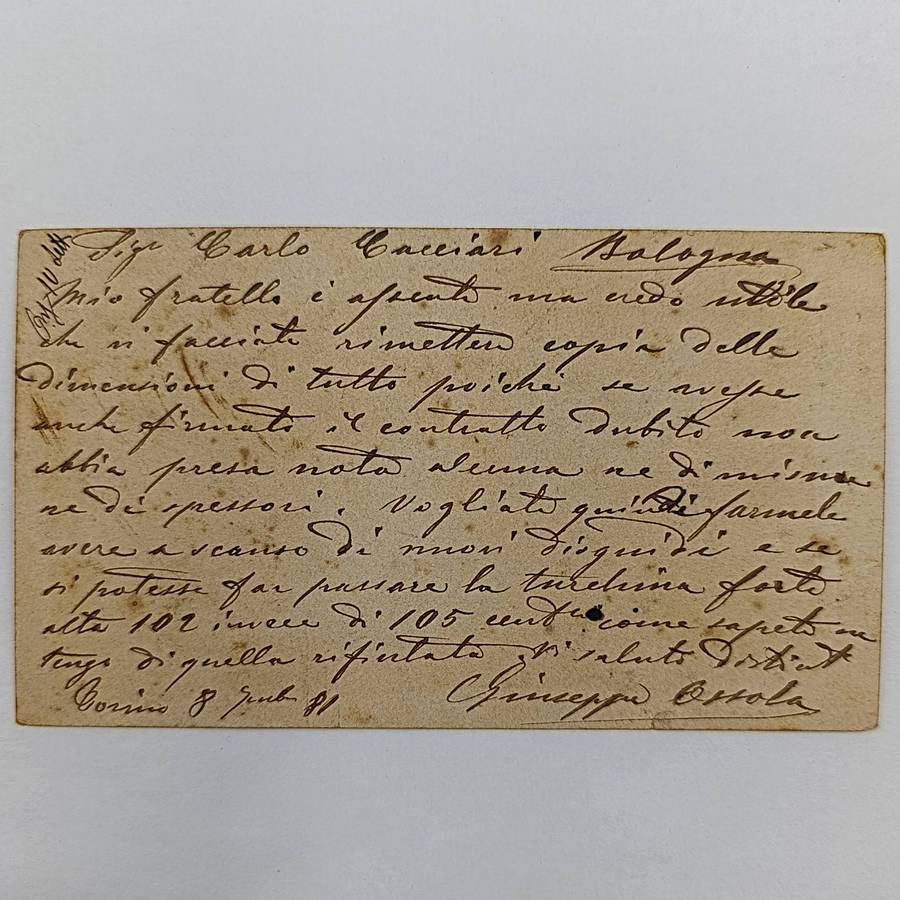 Sigr Carlo Cacciari Bologna
Mio fratello è assente ma credo uttile
che vi facciate rimettere copia delle
dimensioni di tutto poichè se avesse
anche firmato il contratto dubito non
abbia presa nota alcuna ne di misure
ne di spessori. Vogliate quindi farmele
avere a scanso di nuovi disguidi e se
si potesse far passare la turchina forte
alta 102 invece di 105 centri come sapete ne
tengo di quella rifiutata. Vi saluto distint
Torino 8 81 Giuseppe Ossola
10 dett